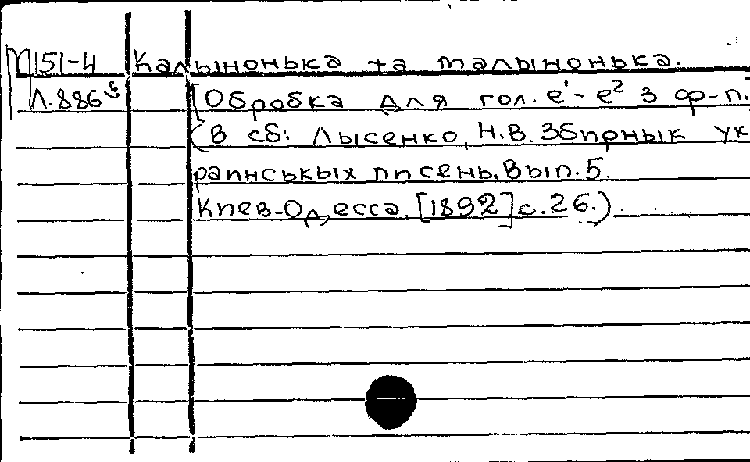 М151-4 Калынонька та малынонька.
Л.886
[Обробка для гол. e¹-e² з ф-п.
(В сб: Лысенко, Н.В. Збирнык ук
раинськых писень, Вып. 5.
Киев-Одесса, [1892] с. 26.)